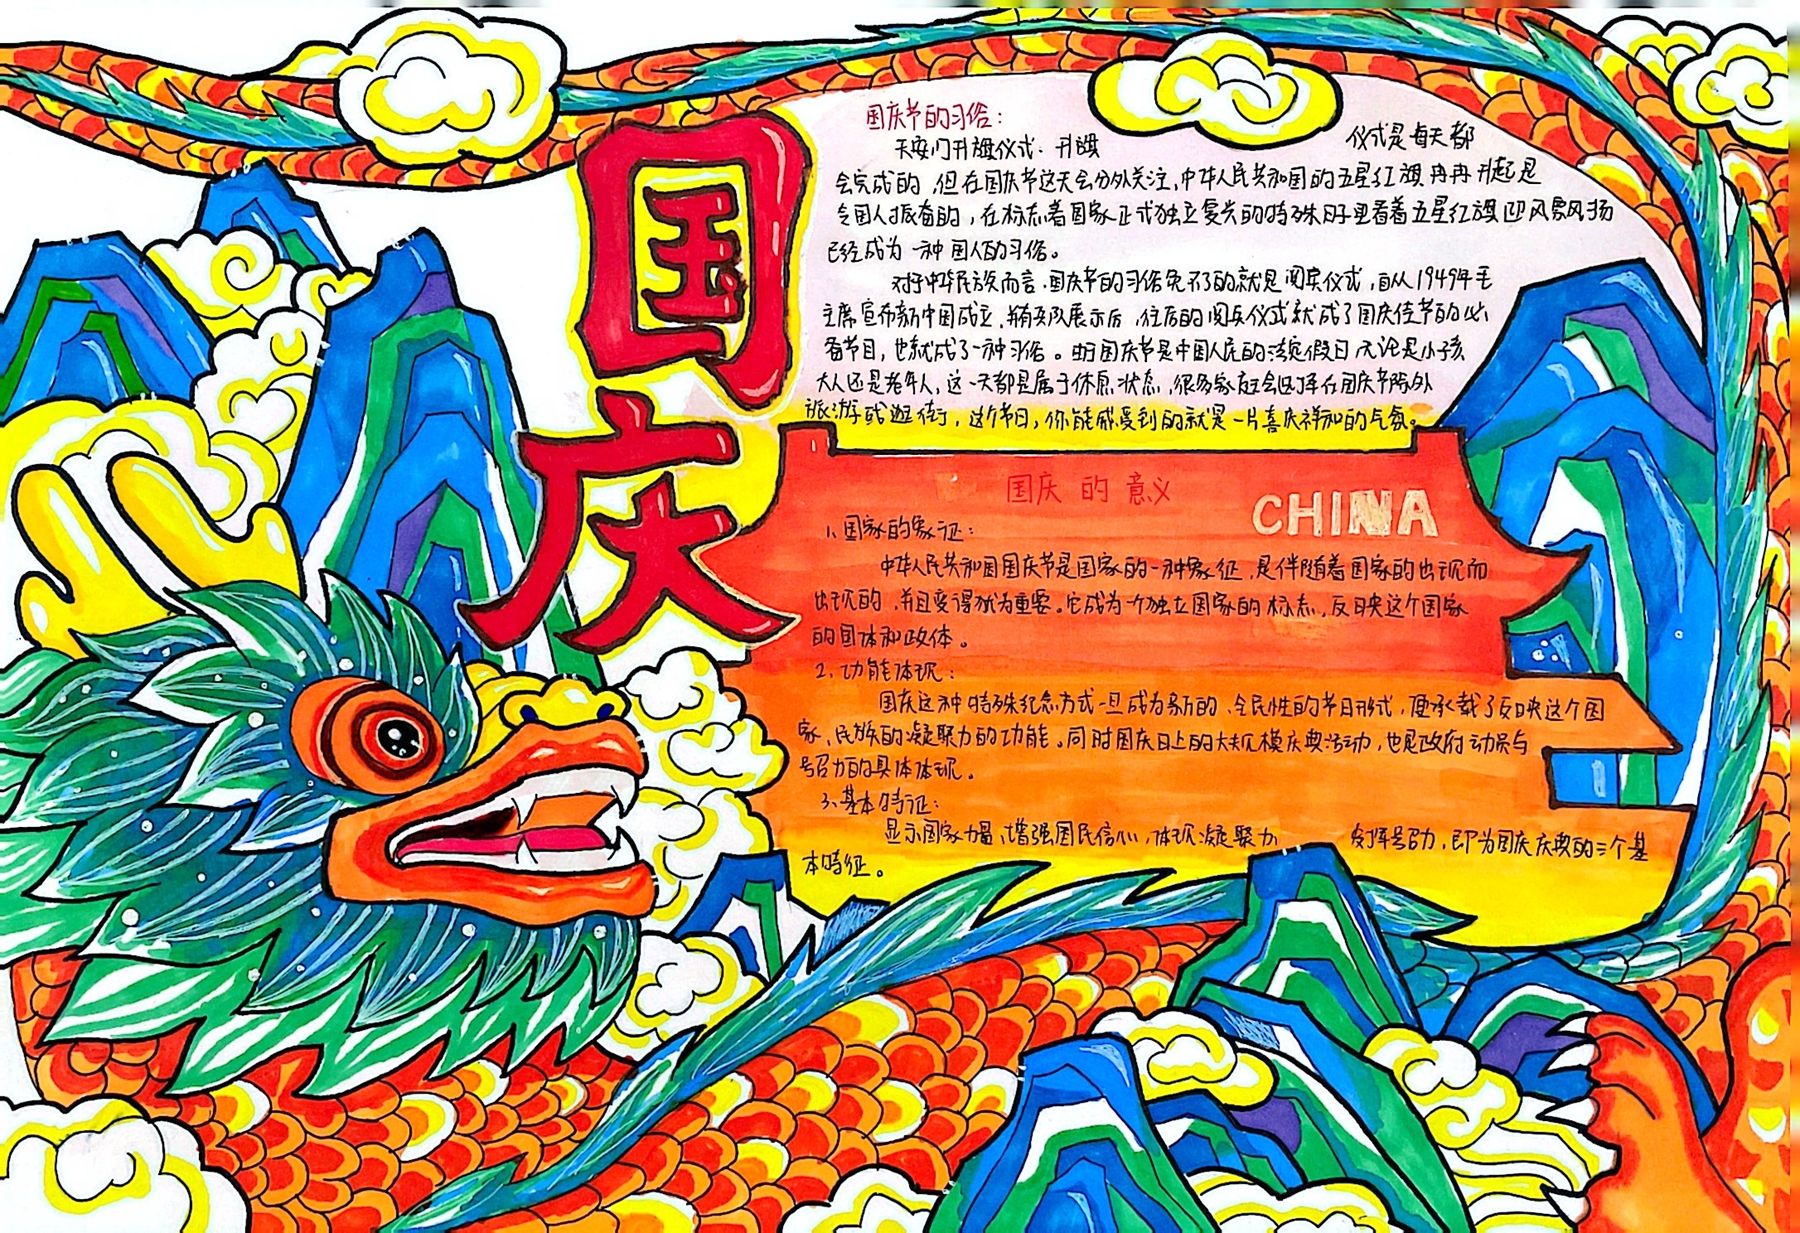 国庆
国庆节的习俗：
天安门升旗仪式：升旗 仪式是每天都
会完成的，但在国庆节这天会分外关注，中华人民共和国的五星红旗冉冉升起是
令国人振奋的，在标志着国家正式独立复兴的特殊日子里看着五星红旗迎风飘扬
已经成为一种国人的习俗。
对于中华民族而言，国庆节的习俗免不了的就是阅兵仪式，自从1949年毛
主席宣布新中国成立，并有列队展示后，往后的阅兵仪式就成了国庆佳节的必
看节目，也就成了一种习俗。由于国庆节是中国人民的法定假日无论是小孩
大人还是老年人，这一天都是属于休息状态，很多家庭会选择在国庆节除外
旅游或逛街，这个节日，你能感受到的就是一片喜庆祥和的气氛。
国庆的意义
CHINA
1、国家的象征：
中华人民共和国国庆节是国家的一种象征，是伴随着国家的出现而
出现的，并且变得尤为重要。它成为一个独立国家的标志，反映这个国家
的国体和政体。
2、功能体现：
国庆这种特殊纪念方式一旦成为新的、全民性的节日形式，便承载了反映这个国
家、民族的凝聚力的功能。同时国庆日上的大规模庆典活动，也是政府动员与
号召力的具体体现。
3、基本特征：
显示国家力量、增强国民信心，体现凝聚力 发挥号召力，即为国庆庆典的三个基
本特征。